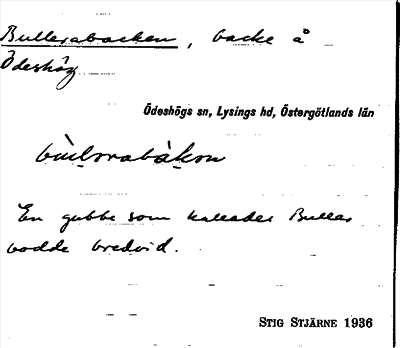 Bullerabacken, backe å
Ödeshög
Ödeshögs sn, Lysings hd, Östergötlands län
En gubbe som kallades Buller
bodde bredvid.
STIG STJÄRNE 1936